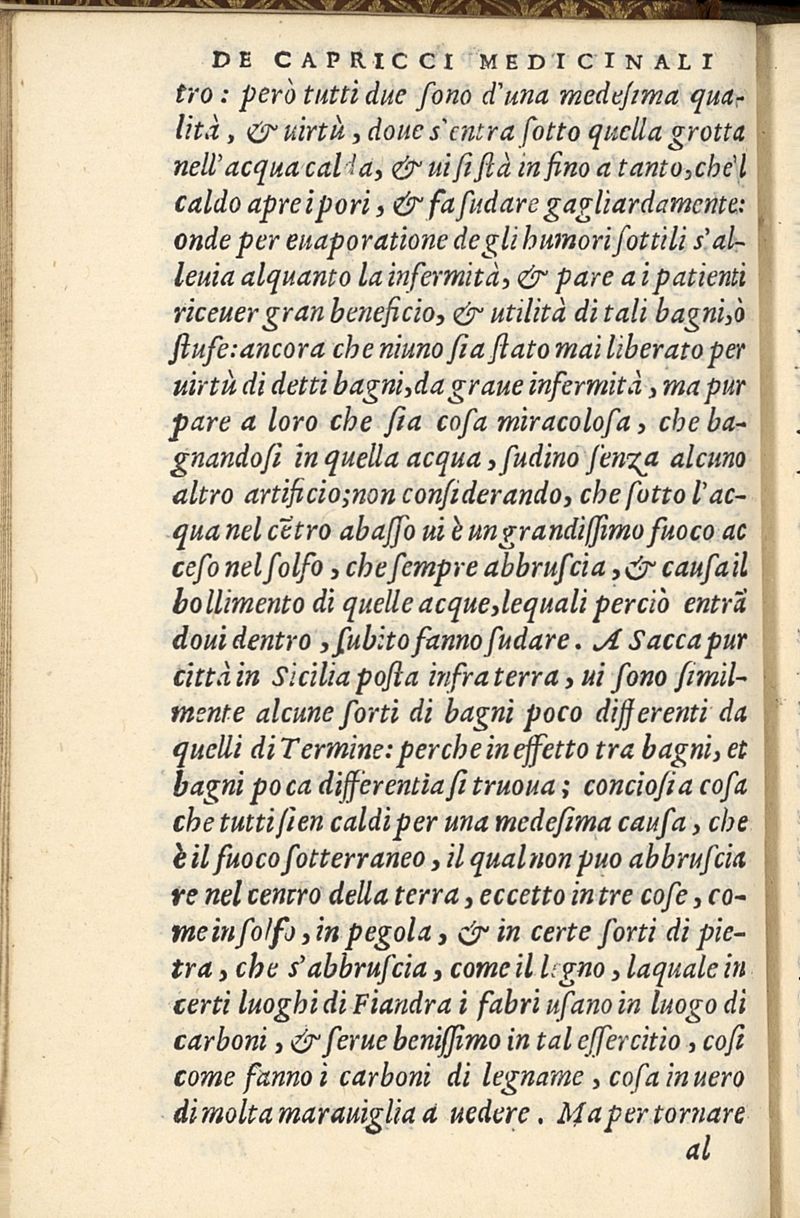 DE CAPRICCI MEDICINALI
tro: però tutti due ſono d'una medeſima qua-
lità, & uirtù, doue s'entra ſotto quella grotta
nell'acqua calda, & ui ſi ſtà in fino a tanto, che'l
caldo apre i pori, & fa ſudare gagliardamente:
onde per euaporatione de gli humori ſottili s'al-
leuia alquanto la infermità, & pare a i patienti
riceuer gran beneficio, & utilità di tali bagni, ò
ſtufe: ancora che niuno ſia ſtato mai liberato per
uirtù di detti bagni, da graue infermità, ma pur
pare a loro che ſia coſa miracoloſa, che ba-
gnandoſi in quella acqua, ſudino ſenza alcuno
altro artificio; non conſiderando, che ſotto l'ac-
qua nel cẽtro abaſſo ui è un grandiſſimo fuoco ac
ceſo nel ſolfo, che ſempre abbruſcia, & cauſa il
bollimento di quelle acque, lequali perciò entrã
doui dentro, ſubito fanno ſudare. A Sacca pur
città in Sicilia poſta infra terra, ui ſono ſimil-
mente alcune ſorti di bagni poco differenti da
quelli di Termine: perche in effetto tra bagni, et
bagni poca differentia ſi truoua; concioſia coſa
che tutti ſien caldi per una medeſima cauſa, che
è il fuoco ſotterraneo, il qual non puo abbruſcia
re nel centro della terra, eccetto in tre coſe, co-
me in ſolfo, in pegola, & in certe ſorti di pie-
tra, che s'abbruſcia, come il legno, laquale in
certi luoghi di Fiandra i fabri uſano in luogo di
carboni, & ſerue beniſſimo in tal eſſercitio, coſi
come fanno i carboni di legname, coſa in uero
di molta marauiglia a uedere. Ma per tornare
al